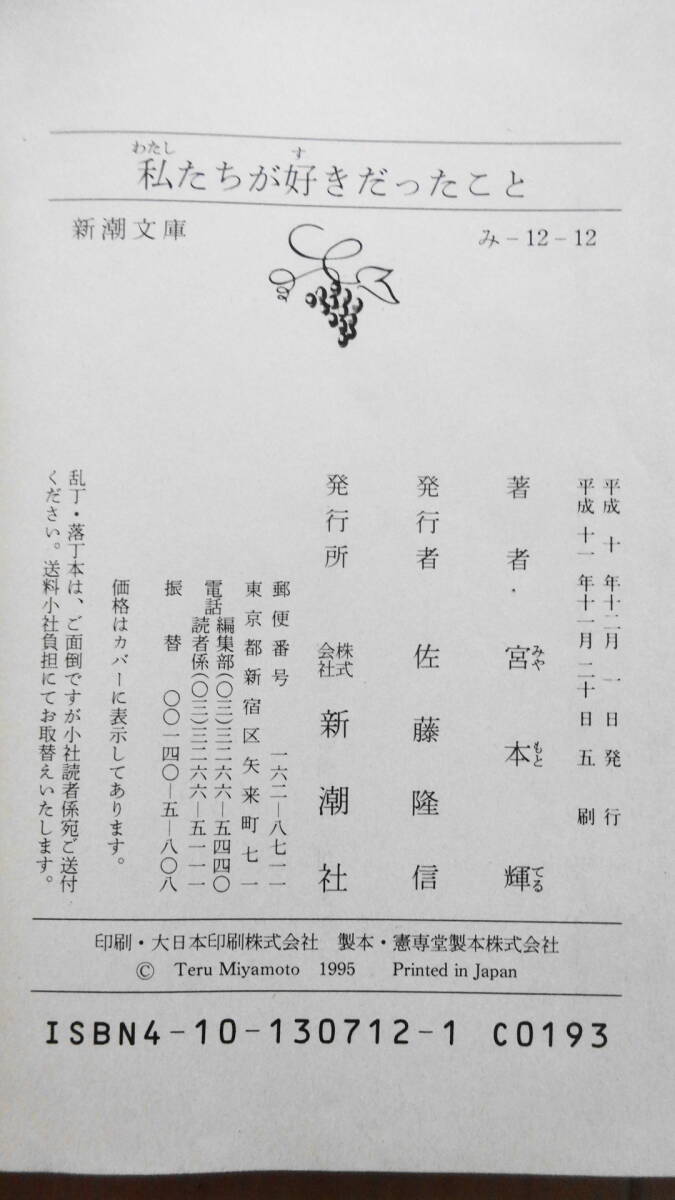 わたし す
私たちが好きだったこと
新潮文庫 み-12-12
平成十年十二月一日発行
平成十一年十一月二十日五刷
著者・宮本輝
みやもとてる
発行者 佐藤隆信
発行所 株式会社 新潮社
郵便番号 一六二―八七一一
東京都新宿区矢来町七一
電話 編集部(〇三)三二六六―五四四〇
読者係(〇三)三二六六―五一一一
振替 〇〇一四〇―五―八〇八
価格はカバーに表示してあります。
乱丁・落丁本は、ご面倒ですが小社読者係宛ご送付
ください。送料小社負担にてお取替えいたします。
印刷・大日本印刷株式会社 製本・憲専堂製本株式会社
© Teru Miyamoto 1995 Printed in Japan
ISBN4-10-130712-1 C0193